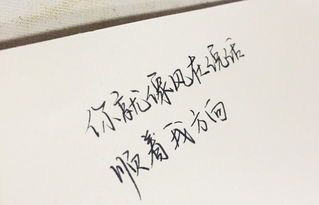 你就像风在说话
顺着我方向